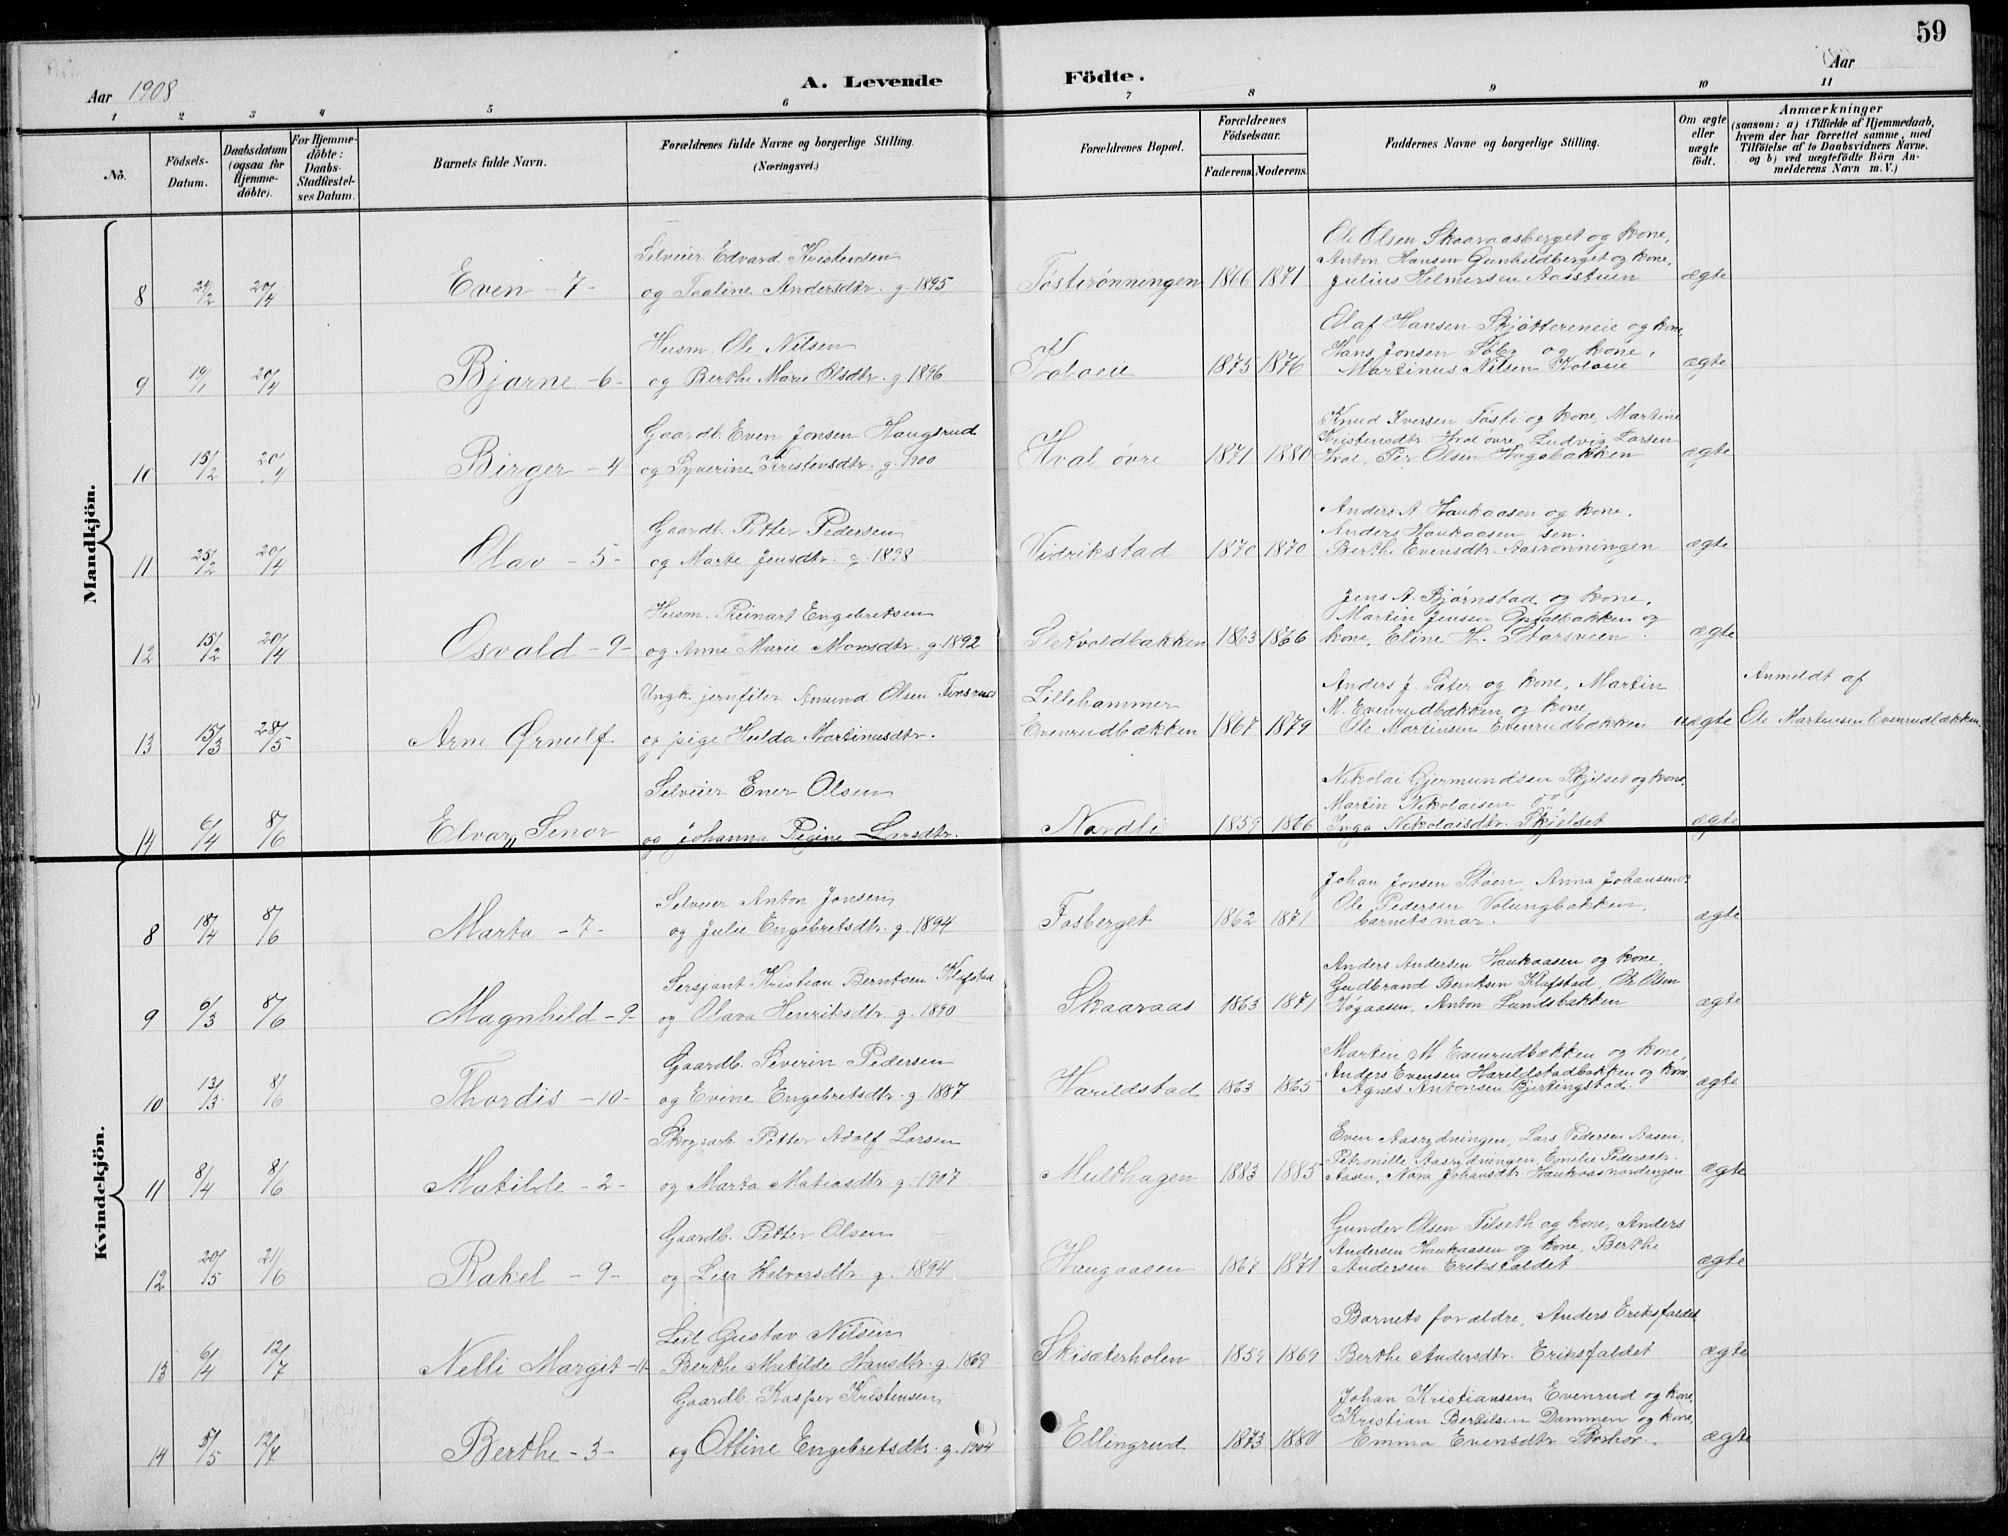 59
Aar 1908
A. Levende Födte.
Aar
1 2 3 4 5 6 7 8 9 10 11
No.
Födsels-Datum.
Daabsdatum (ogsaa for Hjemmedöbte).
For Hjemmedöbte: Daabs-Stadfæstelses Datum.
Barnets fulde Navn.
Forældrenes fulde Navne og borgerlige Stilling. (Næringsvei.)
Forældrenes Bopæl.
Forældrenes Födselsaar.
Faderens. Moderens.
Faddernes Navne og borgerlige Stilling.
Om ægte eller uægte födt.
Anmærkninger
(saasom: a) i Tilfælde af Hjemmedaab, hvem der har forrettet samme, med Tilföielse af to Daabsvidners Navne. og b) ved uægtefödte Börn Anmelderens Navn m. V.)
Mandkjön.
Selveier Edvard Kristensen
Ole Olsen Skaaraasberget og kone,
Anton Hansen Gunhildberget og kone,
8 24/2 20/4 Even - 7 - og Paoline Andersdtr. g. 1895 Tøstirønningen 1866 1871 Julius Helmersen Aasstuen ægte
Husm. Ole Nilsen
Olaf Hansen Skjøttereneie og kone
Hans Jonsen Sæter og kone,
9 19/1 20/4 Bjarne - 6 - og Berthe Marie Olsdtr. g. 1896 Koloeie 1875 1876 Martinus Nilsen Koloeie ægte
Gaardb. Even Jonsen Haugsrud
Knud Iversen Tøsti og kone, Martine
Kristensdtr. Hval øvre, Ludvig Larsen
10 15/2 20/4 Birger - 4 og Syverine Kristensdtr. g. 1900 Hval øvre 1871 1880 Hval, Per Olsen Hagebakken ægte
Gaardb. Petter Pedersen
Anders A. Haukaasen og kone,
Anders Haukaasen sen.
11 25/2 20/4 Olav - 5 - og Marte Jensdtr. g. 1898 Vidrikstad 1870 1870 Berthe Evensdtr. Aasrønningen ægte
Husm. Reinart Engebretsen
Jens A. Bjørnstad og kone,
Martin Jensen Opsalbakken og
12 15/2 20/4 Osvald - 9 - og Anne Marie Monsdtr. g. 1892 Slekvoldbakken 1863 1866 kone, Eline H. Starsveen ægte
Ungk. jernfiler Amund Olsen
Lillehammer
Anders J. Sæter og kone, Martin
M. Evenrudbækken og kone,
Anmeldt af
13 15/3 28/5 Arne Ørnulf og pige Hulda Martinusdtr. Evenrudbækken 1867 1879 Ole Martinsen Evenrudbækken uægte Ole Martensen Evenrudbækken
Selveier Ener Olsen
Nikolai Gjermundsen Skjelset og kone,
Martin Nikolaisen
14 6/4 8/6 Elvar Senor og Johanna Regine Larsdtr. Nordli 1859 1866 Inga Nikolaisdtr. Skjelset ægte
Kvindekjön.
Selveier Anton Jonsen
Johan Jonsen Støen, Anna Johansen
Ole Pedersen Volungbakken,
8 18/4 8/6 Marta - 7 - og Julie Engebretsdtr. g. 1894 Fosberget 1862 1871 barnets mor. ægte
Sersjant Kristian Berntsen Klufstad
Anders Andersen Haukaasen og kone,
Gudbrand Berntsen Klufstad, Ole Olsen
9 6/3 8/6 Magnhild - 9 - og Olava Henriksdtr. g. 1890 Skaaraas 1863 1871 Høgaasen, Anton Lundsbakken ægte
Gaardb. Severin Pedersen
Martin M Evenrudbækken og kone,
Anders Evensen Hareldstadbakken og kone
10 13/3 8/6 Thordis - 10 - og Evine Engebretsdtr. g. 1887 Hareldstad 1863 1865 Agnes Antonsen Bjertingstad. ægte
Skogsarb. Petter Adolf Larsen
Even Aasrydningen, Lars Pedersen Aasen,
Petronille Aasrydningen, Emelie Pedersdtr.
11 8/4 8/6 Matilde - 2 - og Marta Matiasdtr. g. 1907 Multhagen 1883 1885 Aasen, Nora Johansdtr. Haukaasnordengen ægte
Gaardb. Petter Olsen
Gunder Olsen Filseth og kone, Anders
Andersen Haukaasen og kone, Berthe
12 20/5 21/6 Rakel - 9 - og Lisa Halvorsdtr. g. 1894 Haugaasen 1867 1871 Andersen Eriksfaldet ægte
Leil. Gustav Nilsen
Barnets forældre, Anders Eriksfaldet
13 6/4 12/7 Nelli Margit - 11 - Berthe Matilde Hansdtr. g. 1889 Skisæterholen 1859 1869 Berthe Andersdtr. Eriksfaldet ægte
Gaardb. Kasper Kristensen
Johan Kristiansen Evenrud og kone,
Kristian Bertilsen Dammen og kone,
14 5/5 12/7 Berthe - 3 - og Ottine Engebretsdtr. g. 1904 Ellingrud 1873 1880 Emma Evensdtr. ægte